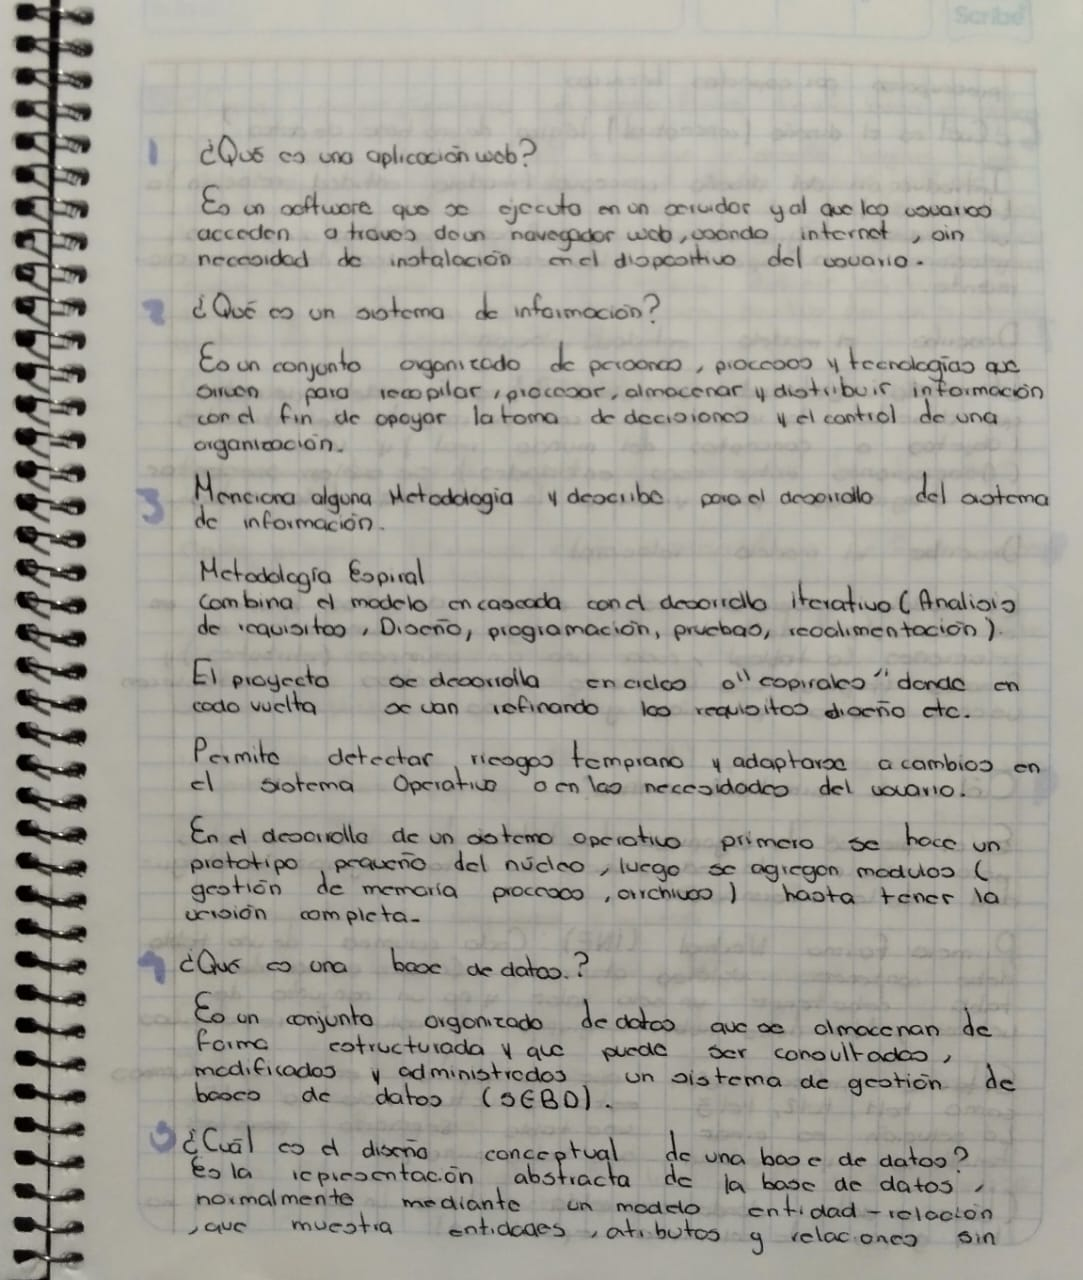 Scribe
1 ¿Qué es una aplicación web?
Es un software que se ejecuta en un servidor y al que los usuarios
acceden a traves de un navegador web, usando internet, sin
necesidad de instalación en el dispositivo del usuario.
2 ¿Qué es un sistema de información?
Es un conjunto organizado de personas, procesos y tecnologías que
sirven para recopilar, procesar, almacenar y distribuir información
con el fin de apoyar la toma de decisiones y el control de una
organización.
3 Menciona alguna Metodologia y describe para el desarrollo del sistema
de información.
Metodología Espiral
Combina el modelo en cascada con el desarrollo iterativo (Analisis
de requisitos, Diseño, programación, pruebas, reoalimentación).
El proyecto se desarrolla en ciclos o "espirales" donde en
cada vuelta se van refinando los requisitos diseño etc.
Permite detectar riesgos temprano y adaptarse a cambios en
el sistema Operativo o en las necesidades del usuario.
En el desarrollo de un sistema operativo primero se hace un
prototipo pequeño del núcleo, luego se agregan modulos (
gestión de memoria procesos, archivos) hasta tener la
versión completa.
4 ¿Que es una base de datos.?
Es un conjunto organizado de datos que se almacenan de
forma estructurada y que puede ser consultados,
modificados y administrados un sistema de gestión de
bases de datos (SGBD).
5 ¿Cuál es el diseño conceptual de una base de datos?
Es la representación abstracta de la base de datos,
normalmente mediante un modelo entidad-relación
, que muestra entidades, atributos y relaciones sin